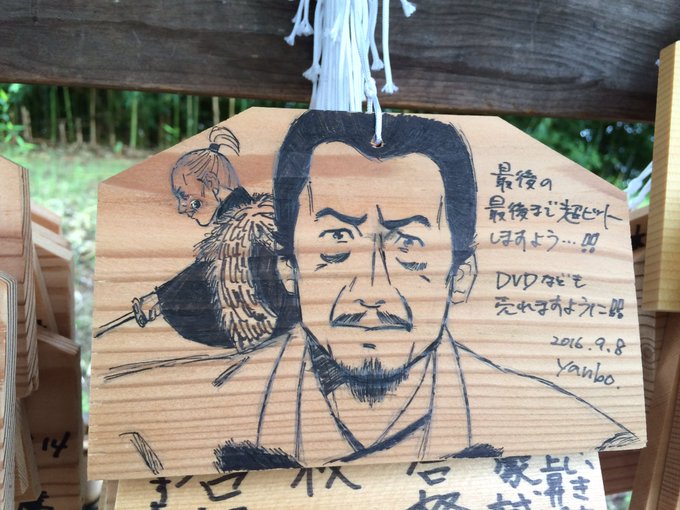 最後の
最後まで超ヒット
しますよう…!!
DVDなども
売れますように!!
2016.9.8
yanbo.
14